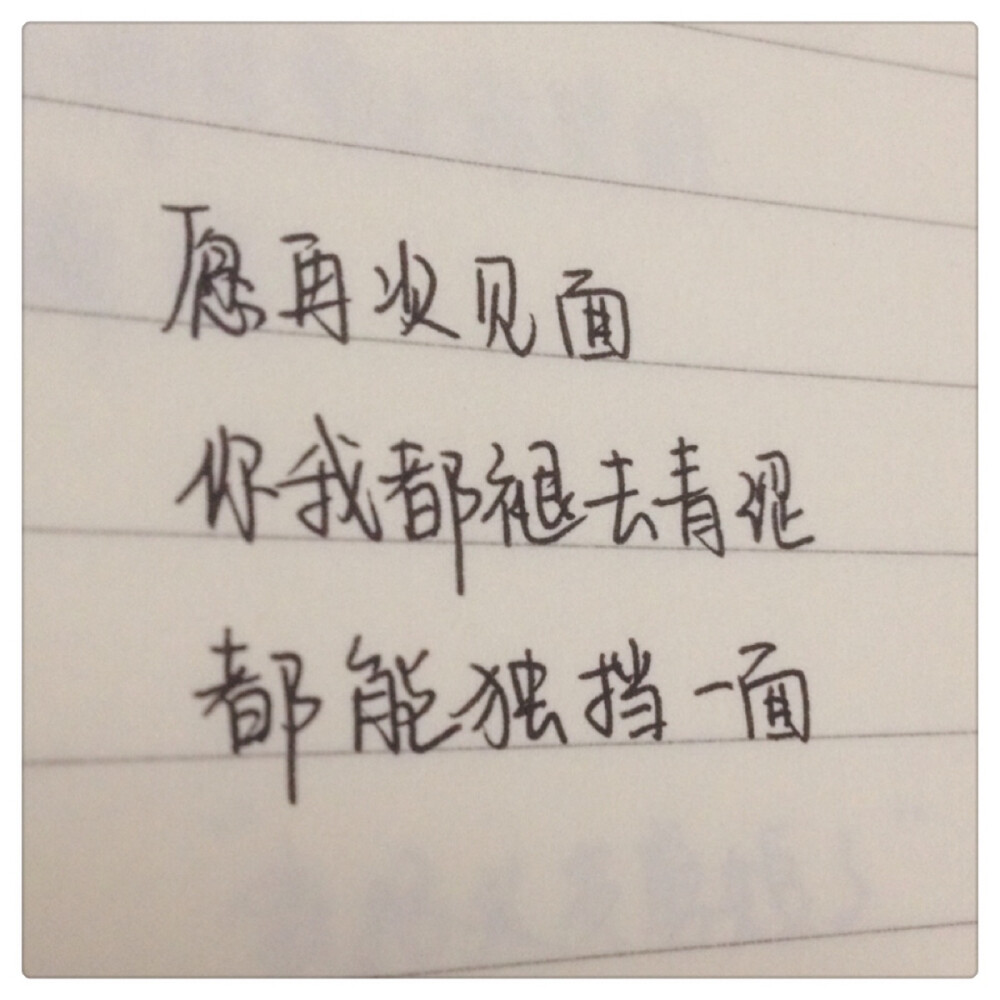 愿再次见面
你我都褪去青涩
都能独挡一面